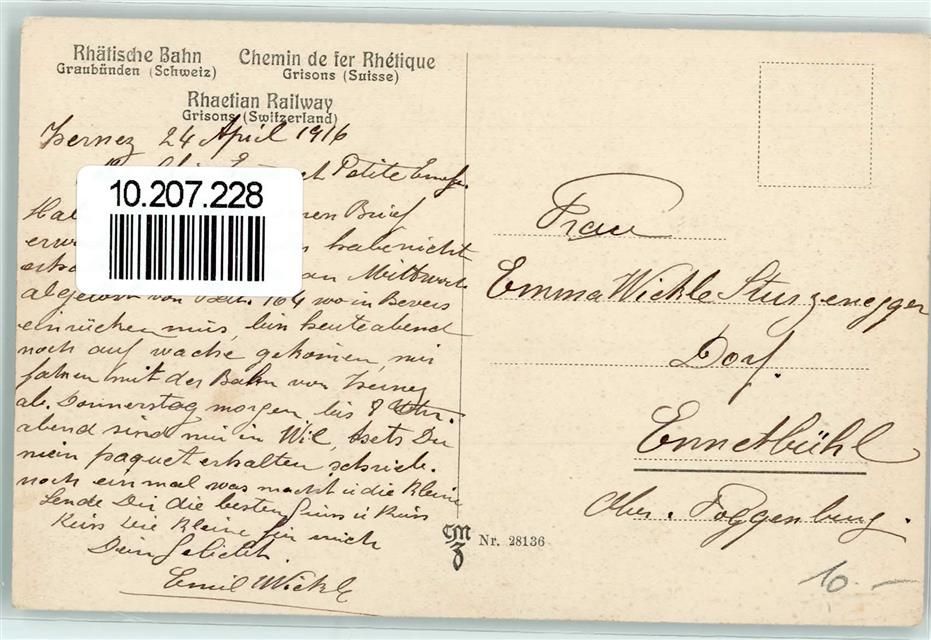 Rhätische Bahn
Graubünden (Schweiz)
Chemin de fer Rhétique
Grisons (Suisse)
Rhaetian Railway
Grisons (Switzerland)
Zernez 24 April 1916
Petite
10.207.228
Brief
habe nicht
Mittwoch
abgelöst von Batt. 164 wo in Bevers
einrücken mus, bin heute abend
noch auf wache gekomen, mir
fahren mit der Bahn von Zernez
ab. Donnerstag morgen, bis 8 Uhr.
abend sind mir in Wil, Du
mein paquet erhalten, schrieb.
noch einmal was macht ü die Kleine
Sende Dir die besten Grüss ü Küss
Küss die Kleine für mich
Dein Geliebt.
Emil Wickle
Frau
Emma Wickle Sturzenegger
Dorf.
Ennetbühl
Ober. Toggenburg.
Nr. 28136
10.-